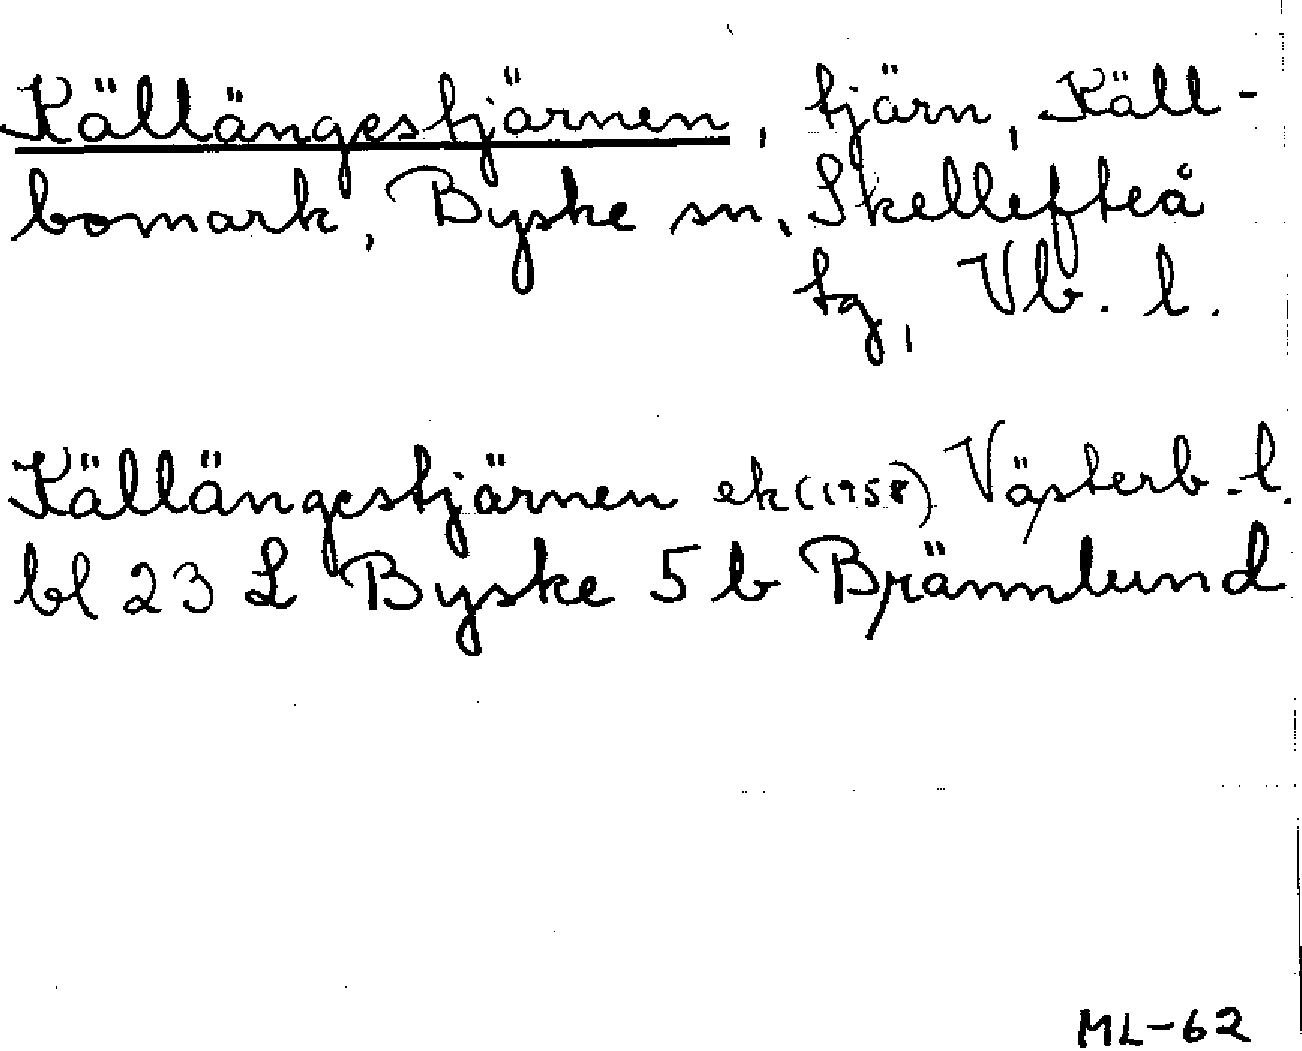 Källängestjärnen, tjärn, Käll-
bomark, Byske sn, Skellefteå
tg, Vb. l.
Källängestjärnen ek (1958) Västerb. l.
bl 23 L Byske 5 b Brännlund
ML-62